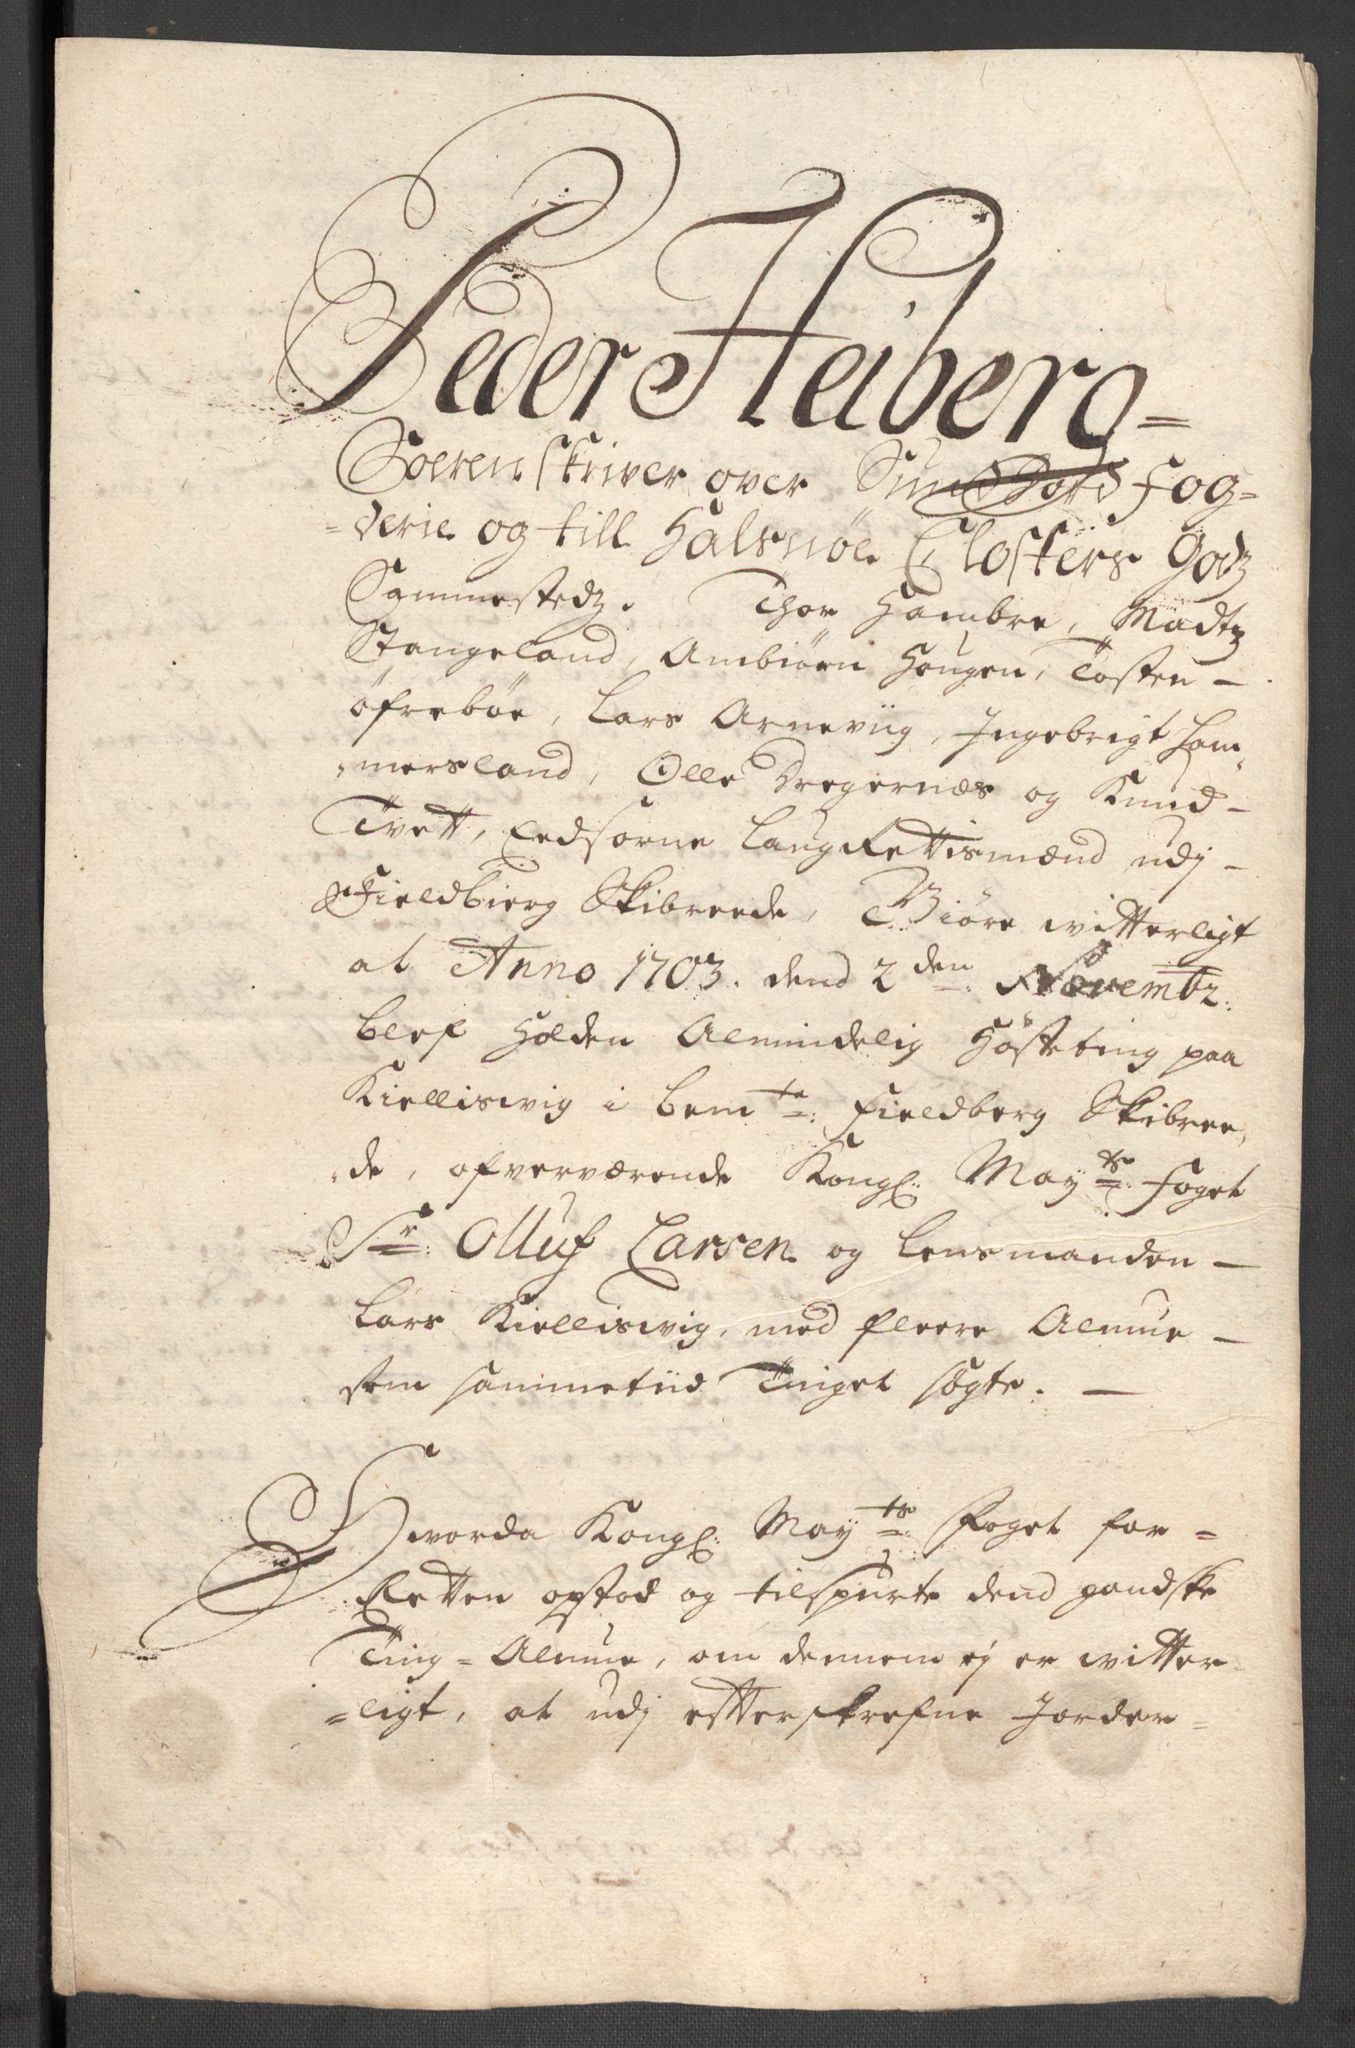 Peder Heiberg =
Soerenskriver over Sundhord Fog=
=derie og till Halsnöe Closters Godz
Sammestedz. Thor Hambre, Madtz
Stangeland, Ambiörn Hougen, Tosten –
öfrebøe, Lars Arneviig, Ingebrigt Ham„
„mersland, Olle Dregernæs og Knud –
Tvett, Eedsorne LaugRettismænd udj –
Fieldbierg Skibreede, Giöre witterligt
at Anno 1703. dend 2den Novembr:
blef Holden Almindelig Høsteting paa
Kielliswig i bemte: Fieldberg Skibree„
„de, ofverværende Kongl: Mayts: Foget
Sr: Olluf Larsen og Lensmanden –
Lars Kielliswig, med fleere Almue –
som sammetiid Tinget søgte. –
Hvorda Kongl: Mayts: Foget for =
Retten opstod og tilspurte dend gandske
Ting=Almue, om dennem ej er witter=
=ligt, at udj efterskrefne Jorder=